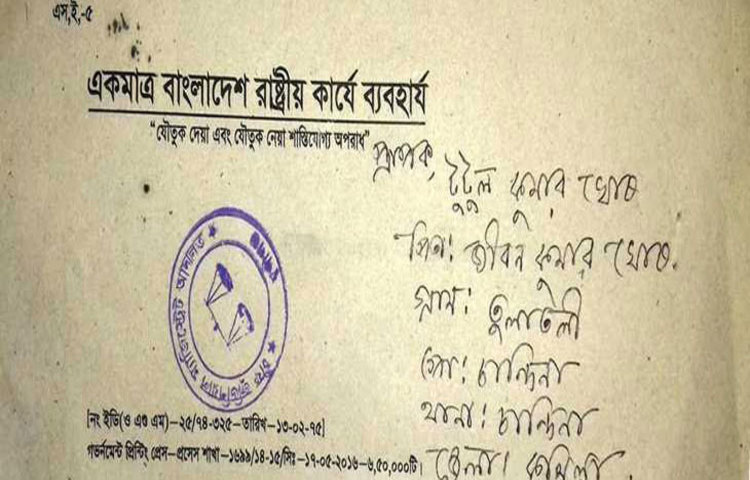 এস,ই,-৫
একমাত্র বাংলাদেশ রাষ্ট্রীয় কার্যে ব্যবহার্য
“যৌতুক দেয়া এবং যৌতুক নেয়া শাস্তিযোগ্য অপরাধ”
প্রাপক,
টুটুল কুমার ঘোষ
পিতা: জীবন কুমার ঘোষ.
গ্রাম: তুলাতলী
পো: চান্দিনা
থানা: চান্দিনা
জেলা: কুমিল্লা.
চীফ জুডিশিয়াল ম্যাজিস্ট্রেট আদালত
[নং ইডি(ও এণ্ড এম)–২৫/৭৪-৩২৫–তারিখ–১৩-০২-৭৫]
গভর্নমেন্ট প্রিন্টিং প্রেস–প্রসেস শাখা–১৬৯৯/১৪-১৫/সিঃ–১৭-০৫-২০১৬–৬,৫০,০০০টি।